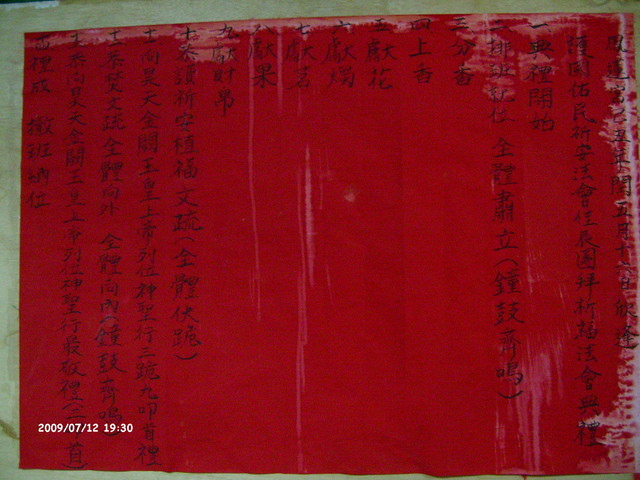 歲逢己丑年閏五月十六日欣逢
護國佑民祈安法會信民團拜祈福法會典禮
一典禮開始
二排班就位 全體肅立(鐘鼓齊鳴)
三分香
四上香
五獻花
六獻燭
七獻茗
八獻果
九獻財帛
十恭讀祈安植福文疏(全體伏跪)
十一向昊天金闕玉皇上帝列位神聖行三跪九叩首禮
十二恭焚文疏全體向外 全體向內(鐘鼓齊鳴)
十三恭向昊天金闕玉皇上帝列位神聖行最敬禮(三叩首)
十四禮成 撤班納位
2009/07/12 19:30